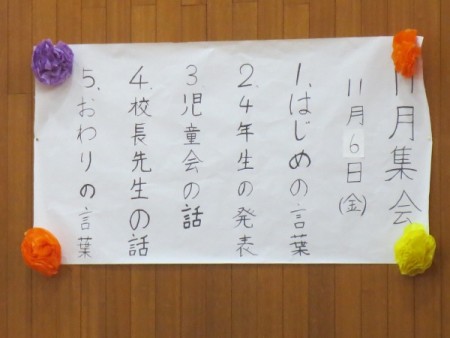 11月集会
11月6日(金)
1.はじめの言葉
2.4年生の発表
3児童会の話
4.校長先生の話
5.おわりの言葉